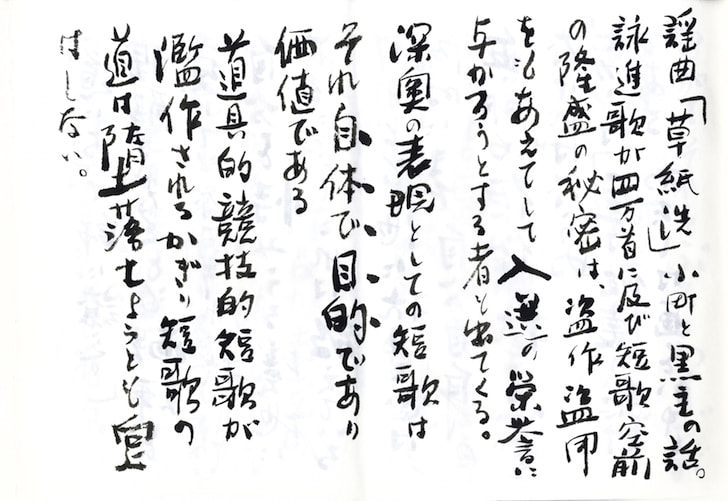 謡曲「草紙洗」小町と黒主の話。
詠進歌が四万首に及び短歌空前
の隆盛の秘密は、盗作盗用
をもあえてして入選の栄誉に
与かろうとする者も出てくる。
深奥の表現としての短歌は
それ自体で目的であり
価値である
道具的競技的短歌が
濫作されるかぎり短歌の
道は堕落せようとも
はしない。